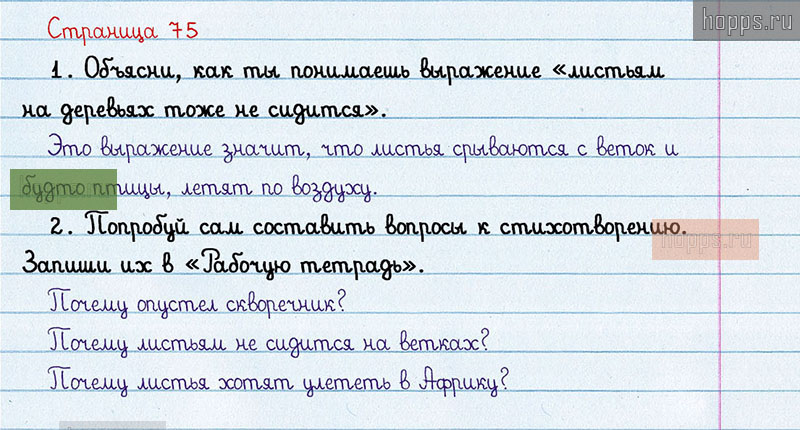 hopps.ru
Страница 75
1. Объясни, как ты понимаешь выражение «листьям
на деревьях тоже не сидится».
Это выражение значит, что листья срываются с веток и
будто птицы, летят по воздуху.
2. Попробуй сам составить вопросы к стихотворению.
hopps.ru
Запиши их в «Рабочую тетрадь».
Почему опустел скворечник?
Почему листьям не сидится на ветках?
Почему листья хотят улететь в Африку?